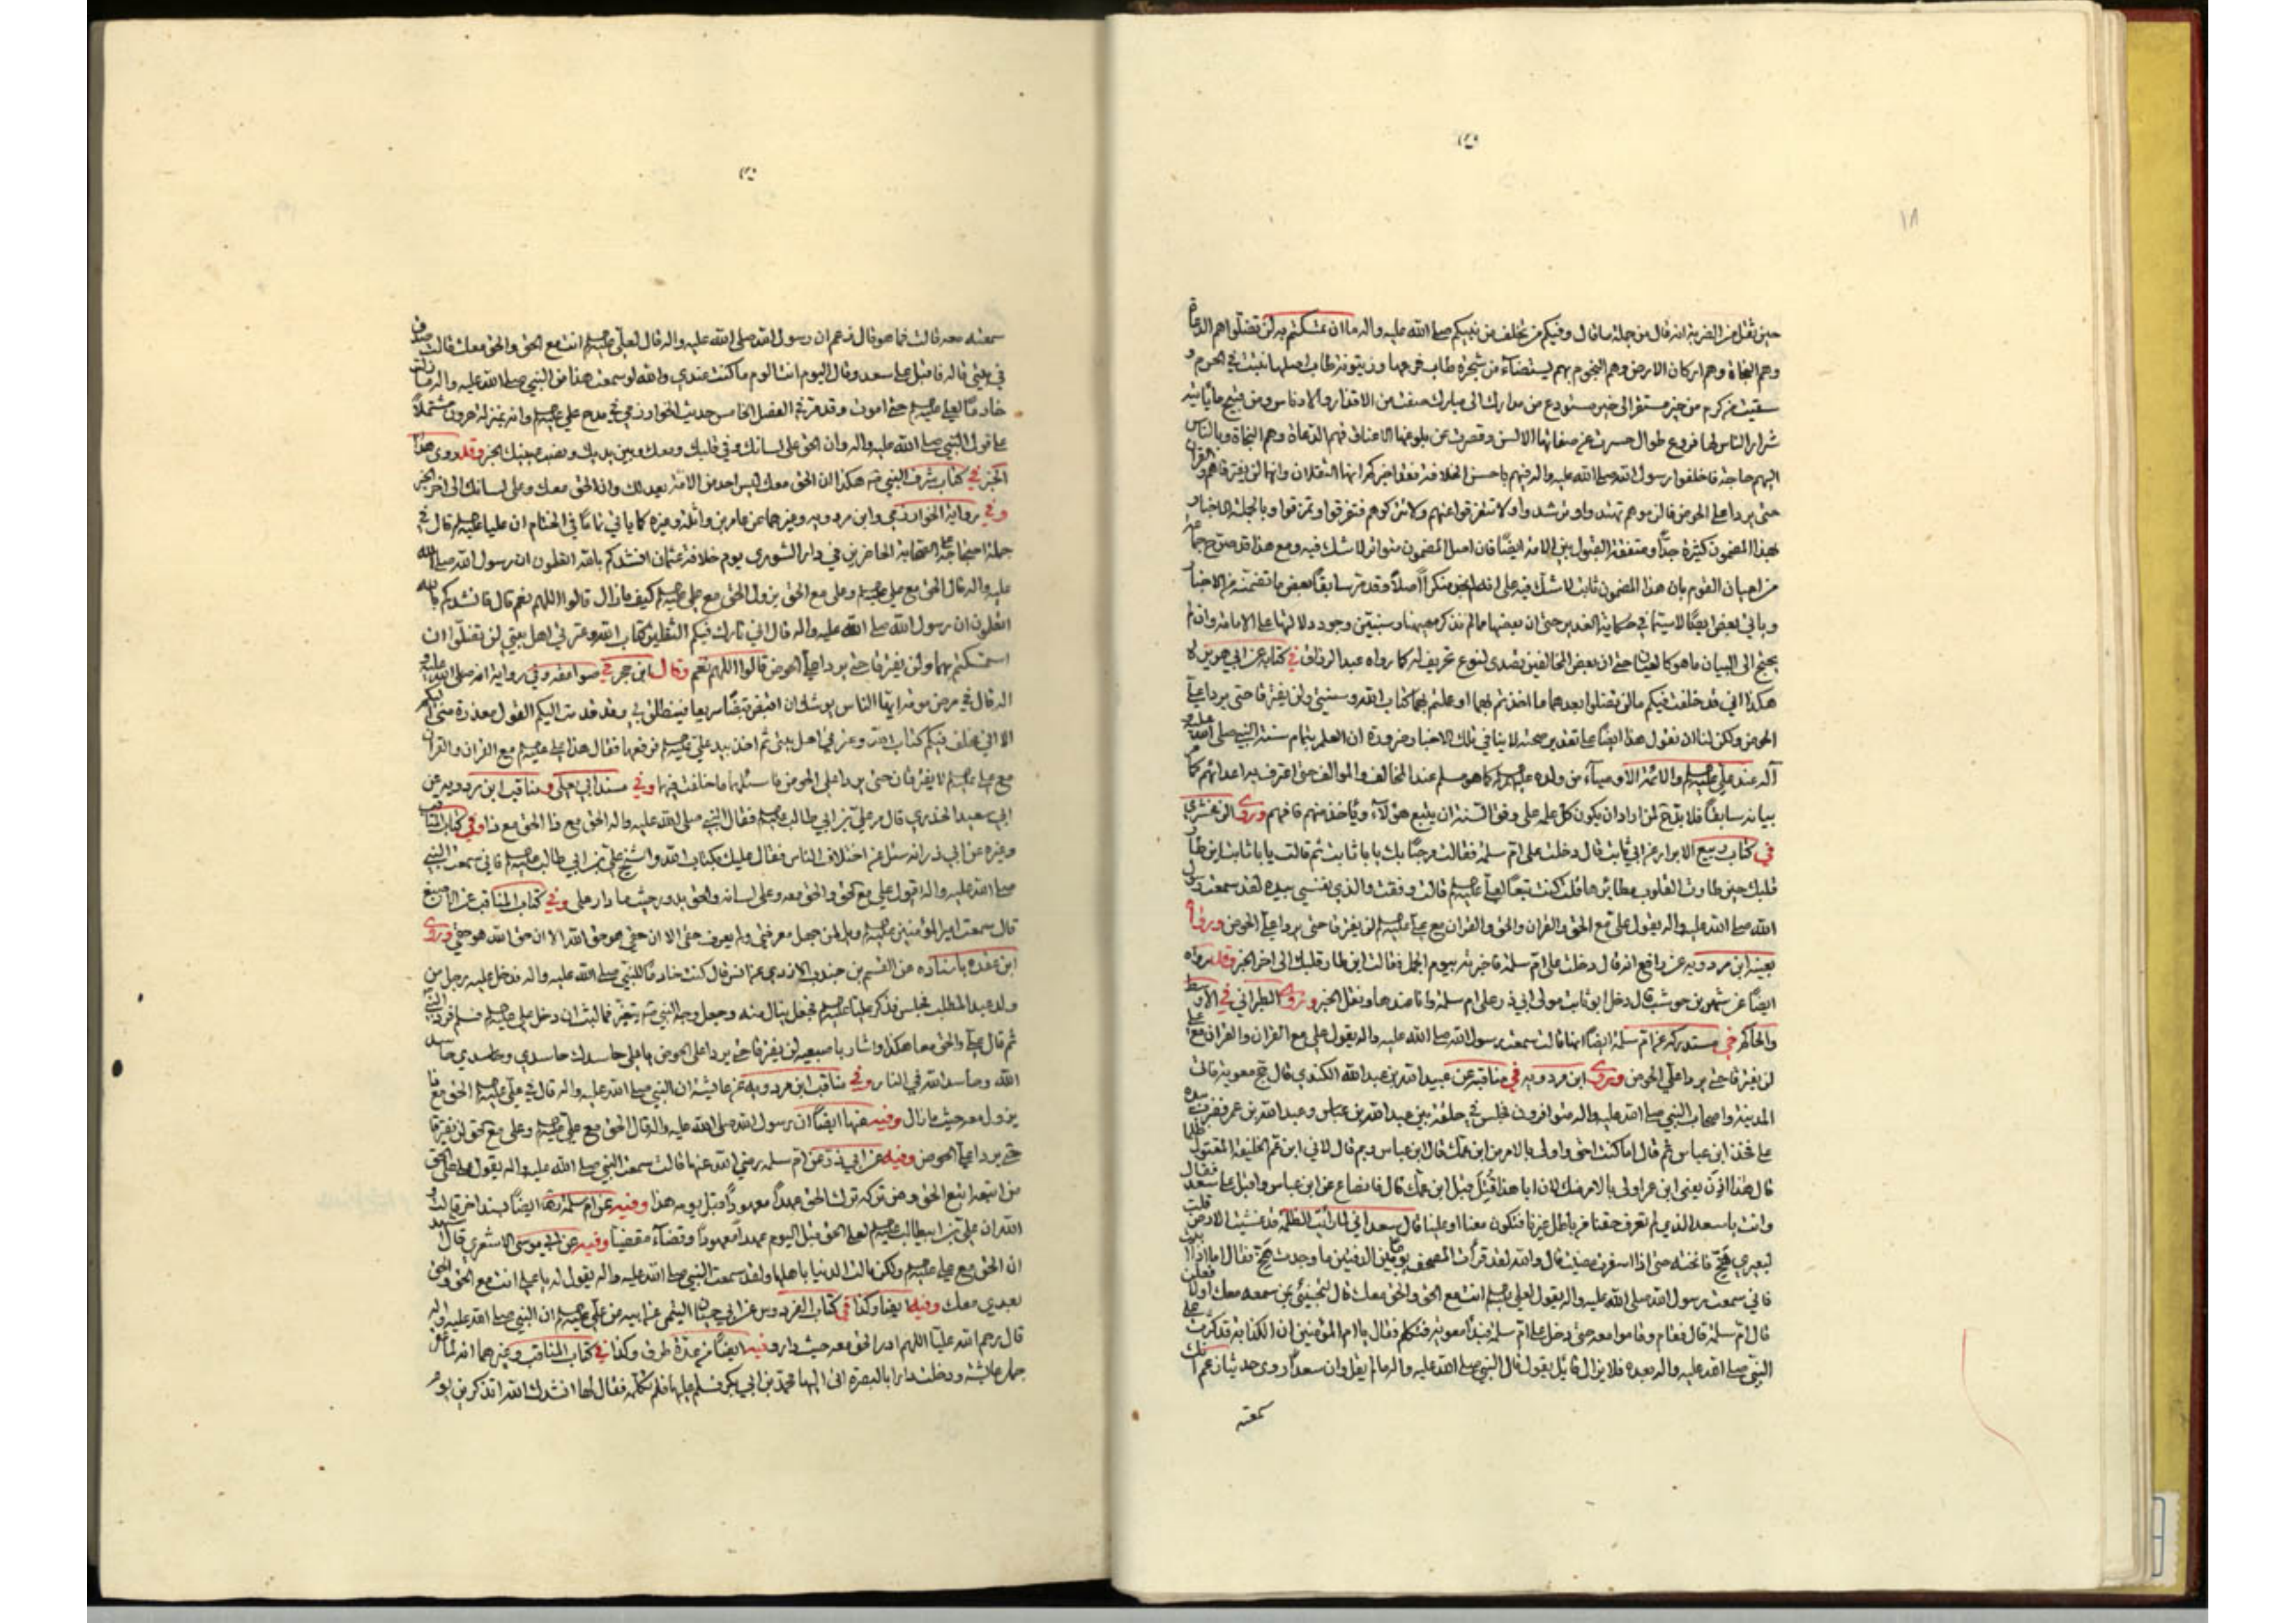 ١٨
حين نقل عن الضربة انه قال من جملة ما قال وفيكم من تخلف من نبيكم صلى الله عليه واله ما ان تمسكتم به لن تضلوا هم الدعاة
وهم النجاة وهم اركان الارض وهم النجوم بهم يستضاء من شجرة طاب فرعها وزيتونة طاب اصلها نبتت في الحرم و
سقيت من كرم من خير مستقر الى خير مستودع من مبارك الى مبارك صفت من الاقذار والادناس ومن قبيح ما ياتيه
شرار الناس لها فروع طوال حسرت عن صفاتها الالسن وقصرت عن بلوغها الاعناق فهم الدعاة وهم النجاة وبالناس
اليهم حاجة فاخلفوا رسول الله صلى الله عليه واله فيهم باحسن الخلافة فقد اخبركم انهما الثقلان وانهما لن يفترقا هم والقران
حتى يردا علي الحوض فالزموهم تهتدوا وترشدوا ولا تتفرقوا عنهم ولا تتركوهم فتفرقوا وتمزقوا وبالجملة الاخبار
بهذا المضمون كثيرة جدا ومتفقة القبول بين الامة ايضا فان اصل المضمون متواتر لا شك فيه ومع هذا قد صرح جماعة
من اعيان القوم بان هذا المضمون ثابت لا شك فيه وقد مر سابقا بعض ما تضمنته من الاخبار
وياتي بعض ايضا لا سيما في حكاية الغدير حتى ان بعضها مما لم نذكر وسنبين وجود دلالتها على الامامة وان لم
يحتج الى البيان ما هو كالعيان حتى ان بعض المخالفين تصدى لنوع تحريف له كما رواه عبد الرزاق في كتابه عن ابي هريرة
هكذا اني قد خلفت فيكم ما لن تضلوا بعدهما ما اخذتم بهما او عملتم بهما كتاب الله وسنتي ولن يفترقا حتى يردا علي
الحوض ولكن لنا ان نقول هذا ايضا على تقدير صحته لا ينافي تلك الاخبار ضرورة ان العلم بتمام سنة النبي صلى الله عليه و
اله عند علي عليه السلم والائمة الاوصياء من ولده عليهم السلم كما هو مسلم عند المخالف والموالف حتى اعترف به اعدائهم كما مر
بيانه سابقا فلا بد لمن اراد ان يكون كل عمله على وفق السنة ان يتبع هؤلاء وياخذ منهم فافهم وروى الزمخشري
في كتاب ربيع الابرار عن ابي ثابت قال دخلت على ام سلمة فقالت مرحبا بك يابا ثابت ثم قالت يابا ثابت اين طار
قلبك حين طارت القلوب مطائرها قلت كنت تبعا لعلي عليه السلم قالت وفقت والذي نفسي بيده لقد سمعت رسول
الله صلى الله عليه واله يقول علي مع الحق والقران والحق والقران مع علي عليه السلم لن يفترقا حتى يردا علي الحوض وروى
بعينه ابن مردويه عن رافع انه قال دخلت على ام سلمة فاخبرته بيوم الجمل فقالت اين طار قلبك الى اخر الخبر وقد رواه
ايضا عن شهر بن حوشب قال دخل ابو ثابت مولى ابي ذر على ام سلمة وانا عندها ونقل الخبر وروى الطبراني في الاوسط
والحاكم في مستدركه عن ام سلمة ايضا انها قالت سمعت رسول الله صلى الله عليه واله يقول علي مع القران والقران مع علي
لن يفترقا حتى يردا علي الحوض وروى ابن مردويه في مناقبه عن عبيد الله بن عبد الله الكندي قال حج معوية فاتى
المدينة واصحاب النبي صلى الله عليه واله متوافرون فجلس في حلقة بين عبد الله بن عباس وعبد الله بن عمر فضرب بيده
على فخذ ابن عباس ثم قال اما كنت احق واولى بالامر من ابن عمك قال ابن عباس وبم قال لاني ابن عم الخليفة المقتول ظلما
قال هذا اذن يعني ابن عمر اولى بالامر منك لان ابا هذا قتل قبل ابن عمك قال فانصاع عن ابن عباس واقبل على سعد فقال
وانت يا سعد الذي لم تعرف حقنا من باطل غيرنا فتكون معنا او علينا قال سعد اني لما رايت الظلمة قد غشيت الارض قلت
لبعيري هخ فانخته حتى اذا اسفرت مضيت قال والله لقد قرات المصحف يوما بين الدفتين ما وجدت هخ فقال اما اذا
فاني سمعت رسول الله صلى الله عليه واله يقول لعلي عليه السلم انت مع الحق والحق معك قال لتجيئني بمن سمعه معك او لافعلن
قال ام سلمة قال فقام وقاموا معه حتى دخل على ام سلمة فبدأ معوية فتكلم فقال يا ام المؤمنين ان الكذابة قد كثرت على
النبي صلى الله عليه واله بعده فلا يزال قائل يقول قال النبي صلى الله عليه واله ما لم يقل وان سعدا روى حديثا زعم انك
سمعته
سمعته معه قالت فما هو قال زعم ان رسول الله صلى الله عليه واله قال لعلي عليه السلم انت مع الحق والحق معك قالت صدق
في بيتي قاله فاقبل على سعد وقال اليوم انت الوم ما كنت عندي والله لو سمعت هذا من النبي صلى الله عليه واله ما زلت
خادما لعلي عليه السلم حتى اموت وقد مر في الفصل الخامس حديث الخوارزمي في مدح علي عليه السلم وانه بمنزلة هرون مشتملا
على قول النبي صلى الله عليه واله وان الحق على لسانك وفي قلبك ومعك وبين يديك ونصب عينيك الخبر وقد روى هذا
الخبر في كتاب شرف النبي ص هكذا ان الحق معك ليس احد من الامة يعدلك وان الحق معك وعلى لسانك الى اخر الخبر
وفي رواية الخوارزمي وابن مردويه وغيرهما عن عامر بن واثلة وغيره كما ياتي تماما في الختام ان عليا عليه السلم قال في
جملة احتجاجه على الصحابة الحاضرين في دار الشورى يوم خلافة عثمان انشدكم بالله اتعلمون ان رسول الله صلى الله
عليه واله قال الحق مع علي عليه السلم وعلي مع الحق يزول الحق مع علي عليه السلم كيف ما زال قالوا اللهم نعم قال فانشدكم بالله
اتعلمون ان رسول الله صلى الله عليه واله قال اني تارك فيكم الثقلين كتاب الله وعترتي اهل بيتي لن تضلوا ان
استمسكتم بهما ولن يفترقا حتى يردا علي الحوض قالوا اللهم نعم وقال ابن حجر في صواعقه وفي رواية انه صلى الله عليه و
اله قال في مرض موته ايها الناس يوشك ان اقبض قبضا سريعا فينطلق بي وقد قدمت اليكم القول معذرة مني اليكم
الا اني مخلف فيكم كتاب الله وعترتي اهل بيتي ثم اخذ بيد علي عليه السلم فرفعها فقال هذا علي عليه السلم مع القران والقران
مع علي عليه السلم لا يفترقان حتى يردا علي الحوض فاسئلهما ما خلفت فيهما وفي مسند ابي يعلى ومناقب ابن مردويه عن
ابي سعيد الخدري قال مر علي بن ابي طالب عليه السلم فقال النبي صلى الله عليه واله الحق مع ذا الحق مع ذا وفي كتاب المناقب
وغيره عن ابي ذر انه سئل عن اختلاف الناس فقال عليك بكتاب الله والشيخ علي بن ابي طالب عليه السلم فاني سمعت النبي
صلى الله عليه واله يقول علي مع الحق والحق معه وعلى لسانه والحق يدور حيث ما دار علي وفي كتاب المناقب عن الاصبغ
قال سمعت امير المؤمنين عليه السلم ويل لمن جهل معرفتي ولم يعرف حقي الا ان حقي هو حق الله الا ان حق الله هو حقي وروى
ابن عقده باسناده عن القسم بن جندب الازدي عن انس قال كنت خادما للنبي صلى الله عليه واله فدخل عليه رجل من
ولد عبد المطلب فجلس فذكر عليا عليه السلم فجعل ينال منه وجعل وجه النبي ص يتغير فما لبث ان دخل علي عليه السلم فسلم فرد النبي
ثم قال علي والحق معا هكذا واشار باصبعيه لن يفترقا حتى يردا علي الحوض يا علي حاسدك حاسدي وحاسدي حاسد
الله وحاسد الله في النار وفي مناقب ابن مردويه عن عايشة ان النبي صلى الله عليه واله قال في علي عليه السلم الحق مع ذا
يزول معه حيث ما زال وفيه عنها ايضا ان رسول الله صلى الله عليه واله قال الحق مع علي عليه السلم وعلي مع الحق لن يفترقا
حتى يردا علي الحوض وفيه عن ابي ذر عن ام سلمه رضي الله عنها قالت سمعت النبي صلى الله عليه واله يقول علي على الحق
من اتبعه اتبع الحق ومن تركه ترك الحق عهدا معهودا قبل يومه هذا وفيه عن ام سلمة ايضا بسند اخر قالت و
الله ان علي بن ابيطالب عليه السلم لعلى الحق قبل اليوم عهدا معهودا وقضاء مقضيا وفيه عن ابي موسى الاشعري قال اشهد
ان الحق مع علي عليه السلم ولكن مالت الدنيا باهلها ولقد سمعت النبي صلى الله عليه واله يقول له يا علي انت مع الحق والحق
بعدي معك وفيه ايضا وكذا في كتاب الفردوس عن ابي حيان التيمي عن ابيه عن علي عليه السلم ان النبي صلى الله عليه واله
قال رحم الله عليا اللهم ادر الحق معه حيث دار وفيه ايضا من عدة طرق وكذا في كتاب المناقب وغيرهما انه لما عقر
جمل عايشة ودخلت دارا بالبصرة اتى اليها محمد بن ابي بكر فسلم عليها فلم تكلمه فقال لها انشدك الله اتذكرين يوم